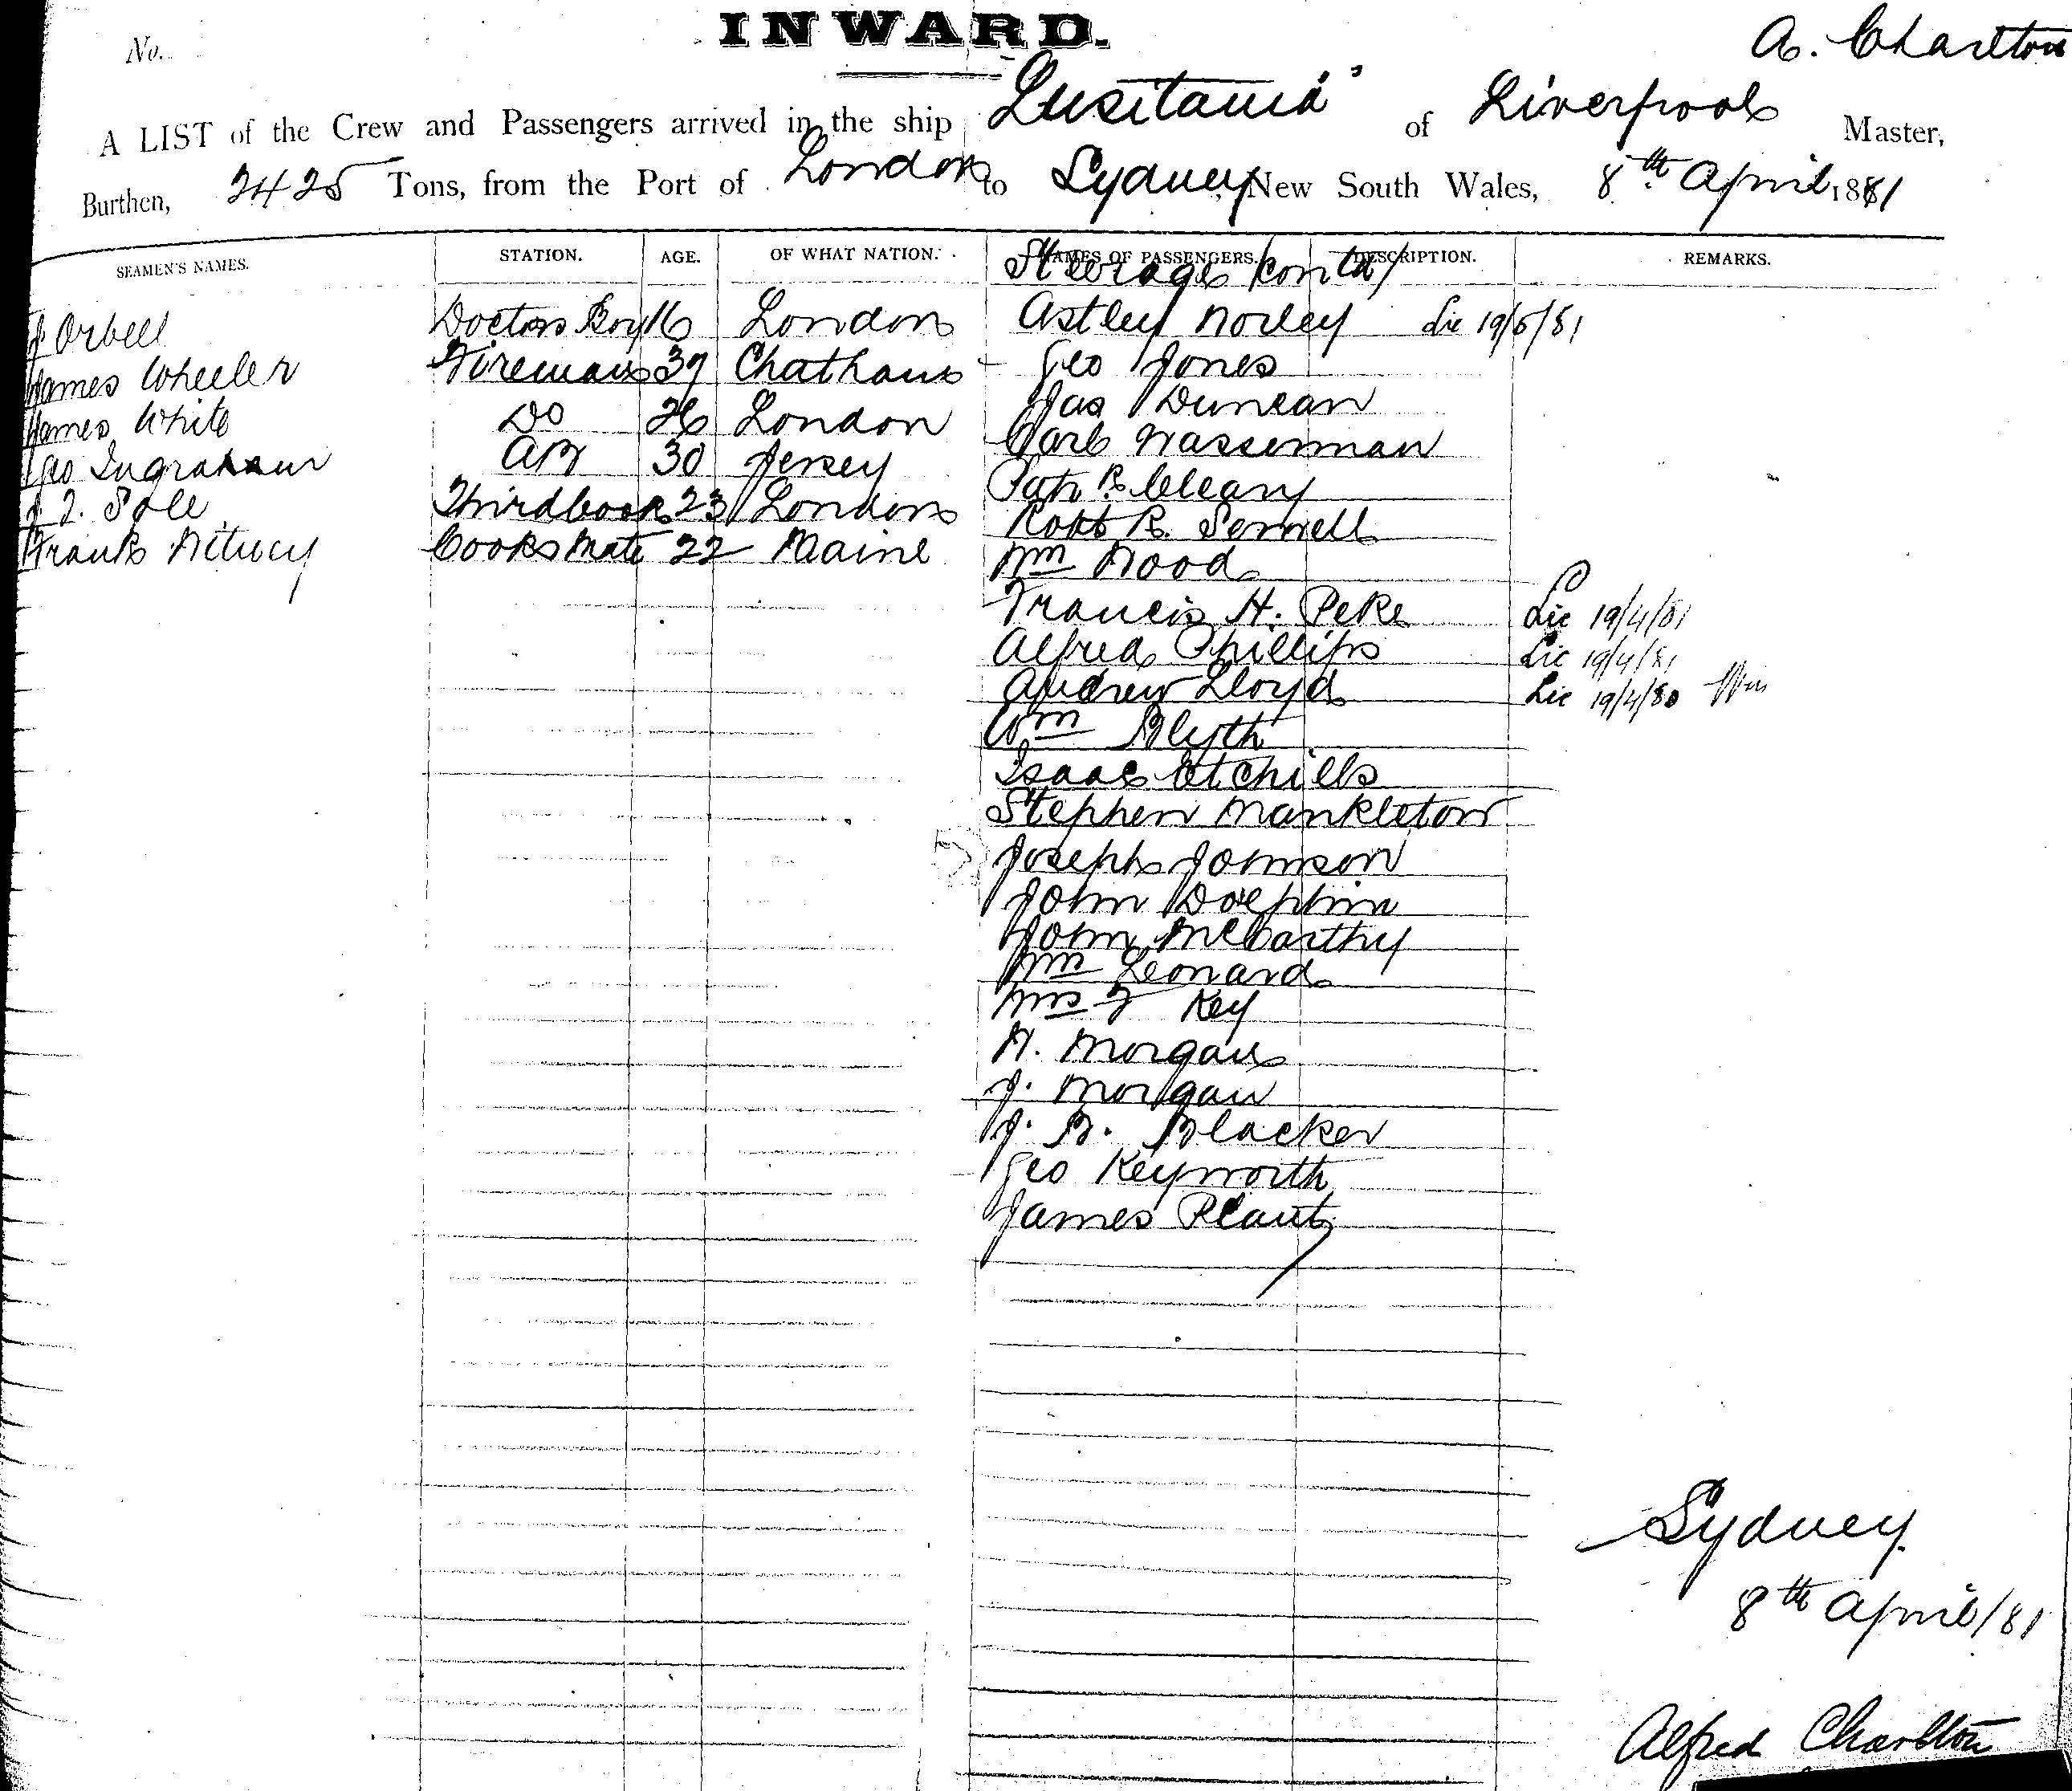 INWARD.
No.
A. Charlton
A LIST of the Crew and Passengers arrived in the ship "Lusitania" of Liverpool Master,
Burthen, 2425 Tons, from the Port of London to Sydney New South Wales, 8th April 1881
SEAMEN'S NAMES. STATION. AGE. OF WHAT NATION. NAMES OF PASSENGERS. DESCRIPTION. REMARKS.
Steerage (contd)
J Orbell Doctors Boy 16 London Astley Morley Lic 19/5/81
James Wheeler Fireman 39 Chatham Geo Jones
James White Do 26 London Jas Duncan
Geo Ingraham AB 30 Jersey Carl Wasserman
J. J. Sole Third Cook 23 London Patk Cleary
Frank Cooks Mate 22 Maine Robt R. Sennell
Wm Wood
Francis H. Peke Lic 19/4/81
Alfred Phillips Lic 19/4/81
Andrew Lloyd Lic 19/4/80
Wm Blyth
Isaac Etchills
Stephen Mankleton
Joseph Johnson
John Dolphin
John McCarthy
Wm Leonard
Mrs F Key
W. Morgan
J. Morgan
J. B. Blacker
Geo Keyworth
James Plant
Sydney
8th April/81
Alfred Charlton